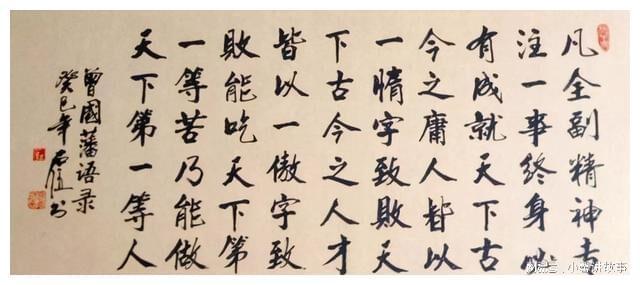 凡全副精神专
注一事終身必
有成就天下古
今之庸人皆以
一惰字致敗天
下古今之人才
皆以一傲字致
敗能吃天下第
一等苦乃能做
天下第一等人
曾國藩语录
癸巳年 书
讲故事